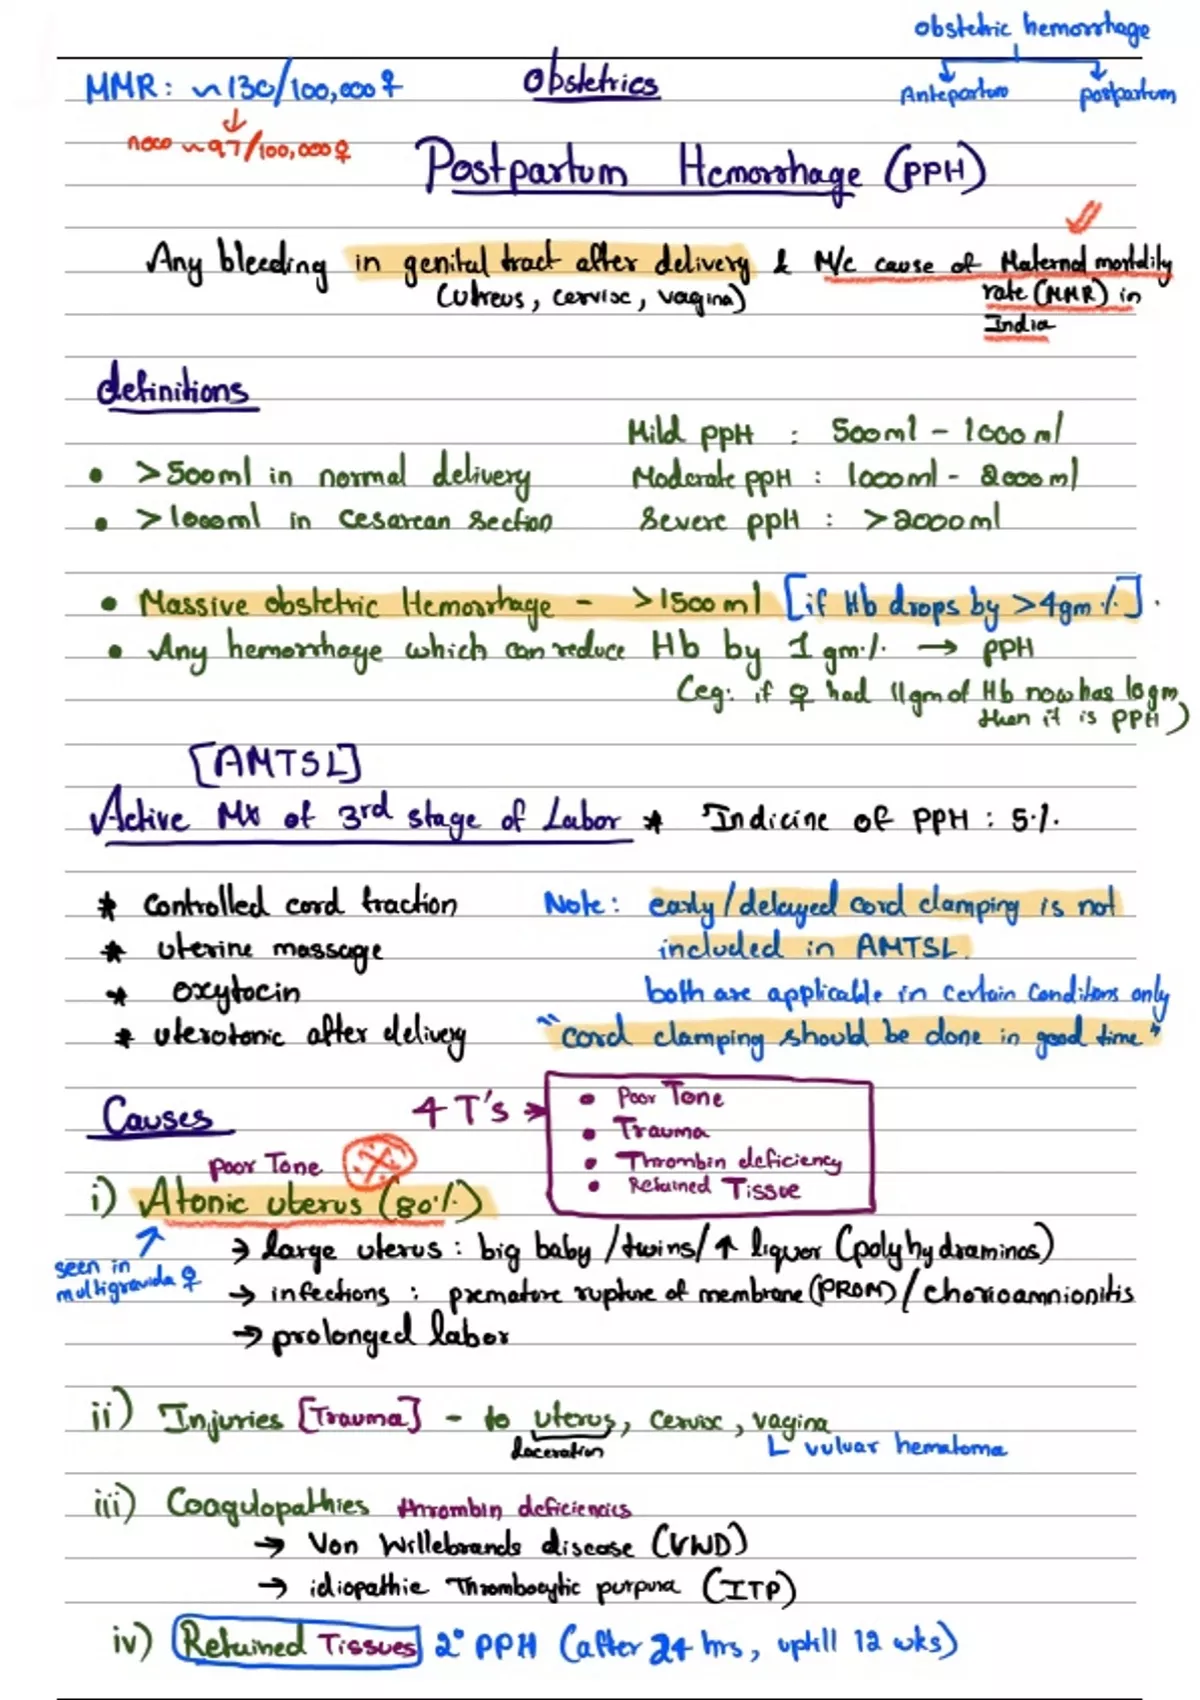 obstetric hemorrhage
Antepartum postpartum
MMR: ~130/100,000♀
↓
now ~97/100,000♀
Obstetrics
Postpartum Hemorrhage (PPH)
Any bleeding in genital tract after delivery & M/c cause of Maternal mortality
(utreus, cervix, vagina) rate (MMR) in
India
definitions
Mild PPH : 500ml - 1000ml
• >500ml in normal delivery Moderate PPH : 1000ml - 2000ml
• >1000ml in cesarean section Severe PPH : >2000ml
• Massive obstetric Hemorrhage - >1500ml [if Hb drops by >4gm%].
• Any hemorrhage which can reduce Hb by 1gm% → PPH
(eg: if ♀ had 11gm of Hb now has 10gm
then it is PPH)
[AMTSL]
Active Mx of 3rd stage of Labor * Indicine of PPH : 5%
* controlled cord traction Note: early/delayed cord clamping is not
* uterine massage included in AMTSL.
* oxytocin both are applicable in certain conditions only
* uterotonic after delivery "cord clamping should be done in good time"
Causes 4 T's →
• Poor Tone
• Trauma
• Thrombin deficiency
• Retained Tissue
Poor Tone
i) Atonic uterus (80%)
seen in
multigravida ♀
→ large uterus : big baby/twins/↑ liquor (polyhydraminos)
→ infections : premature rupture of membrane (PROM)/chorioamnionitis
→ prolonged labor
ii) Injuries [Trauma] - to uterus, cervix, vagina
laceration ∟ vulvar hematoma
iii) Coagulopathies thrombin deficiencies
→ Von Willebrands disease (VWD)
→ idiopathic Thrombocytic purpura (ITP)
iv) Retained Tissues 2° PPH (after 24 hrs, uptill 12 wks)